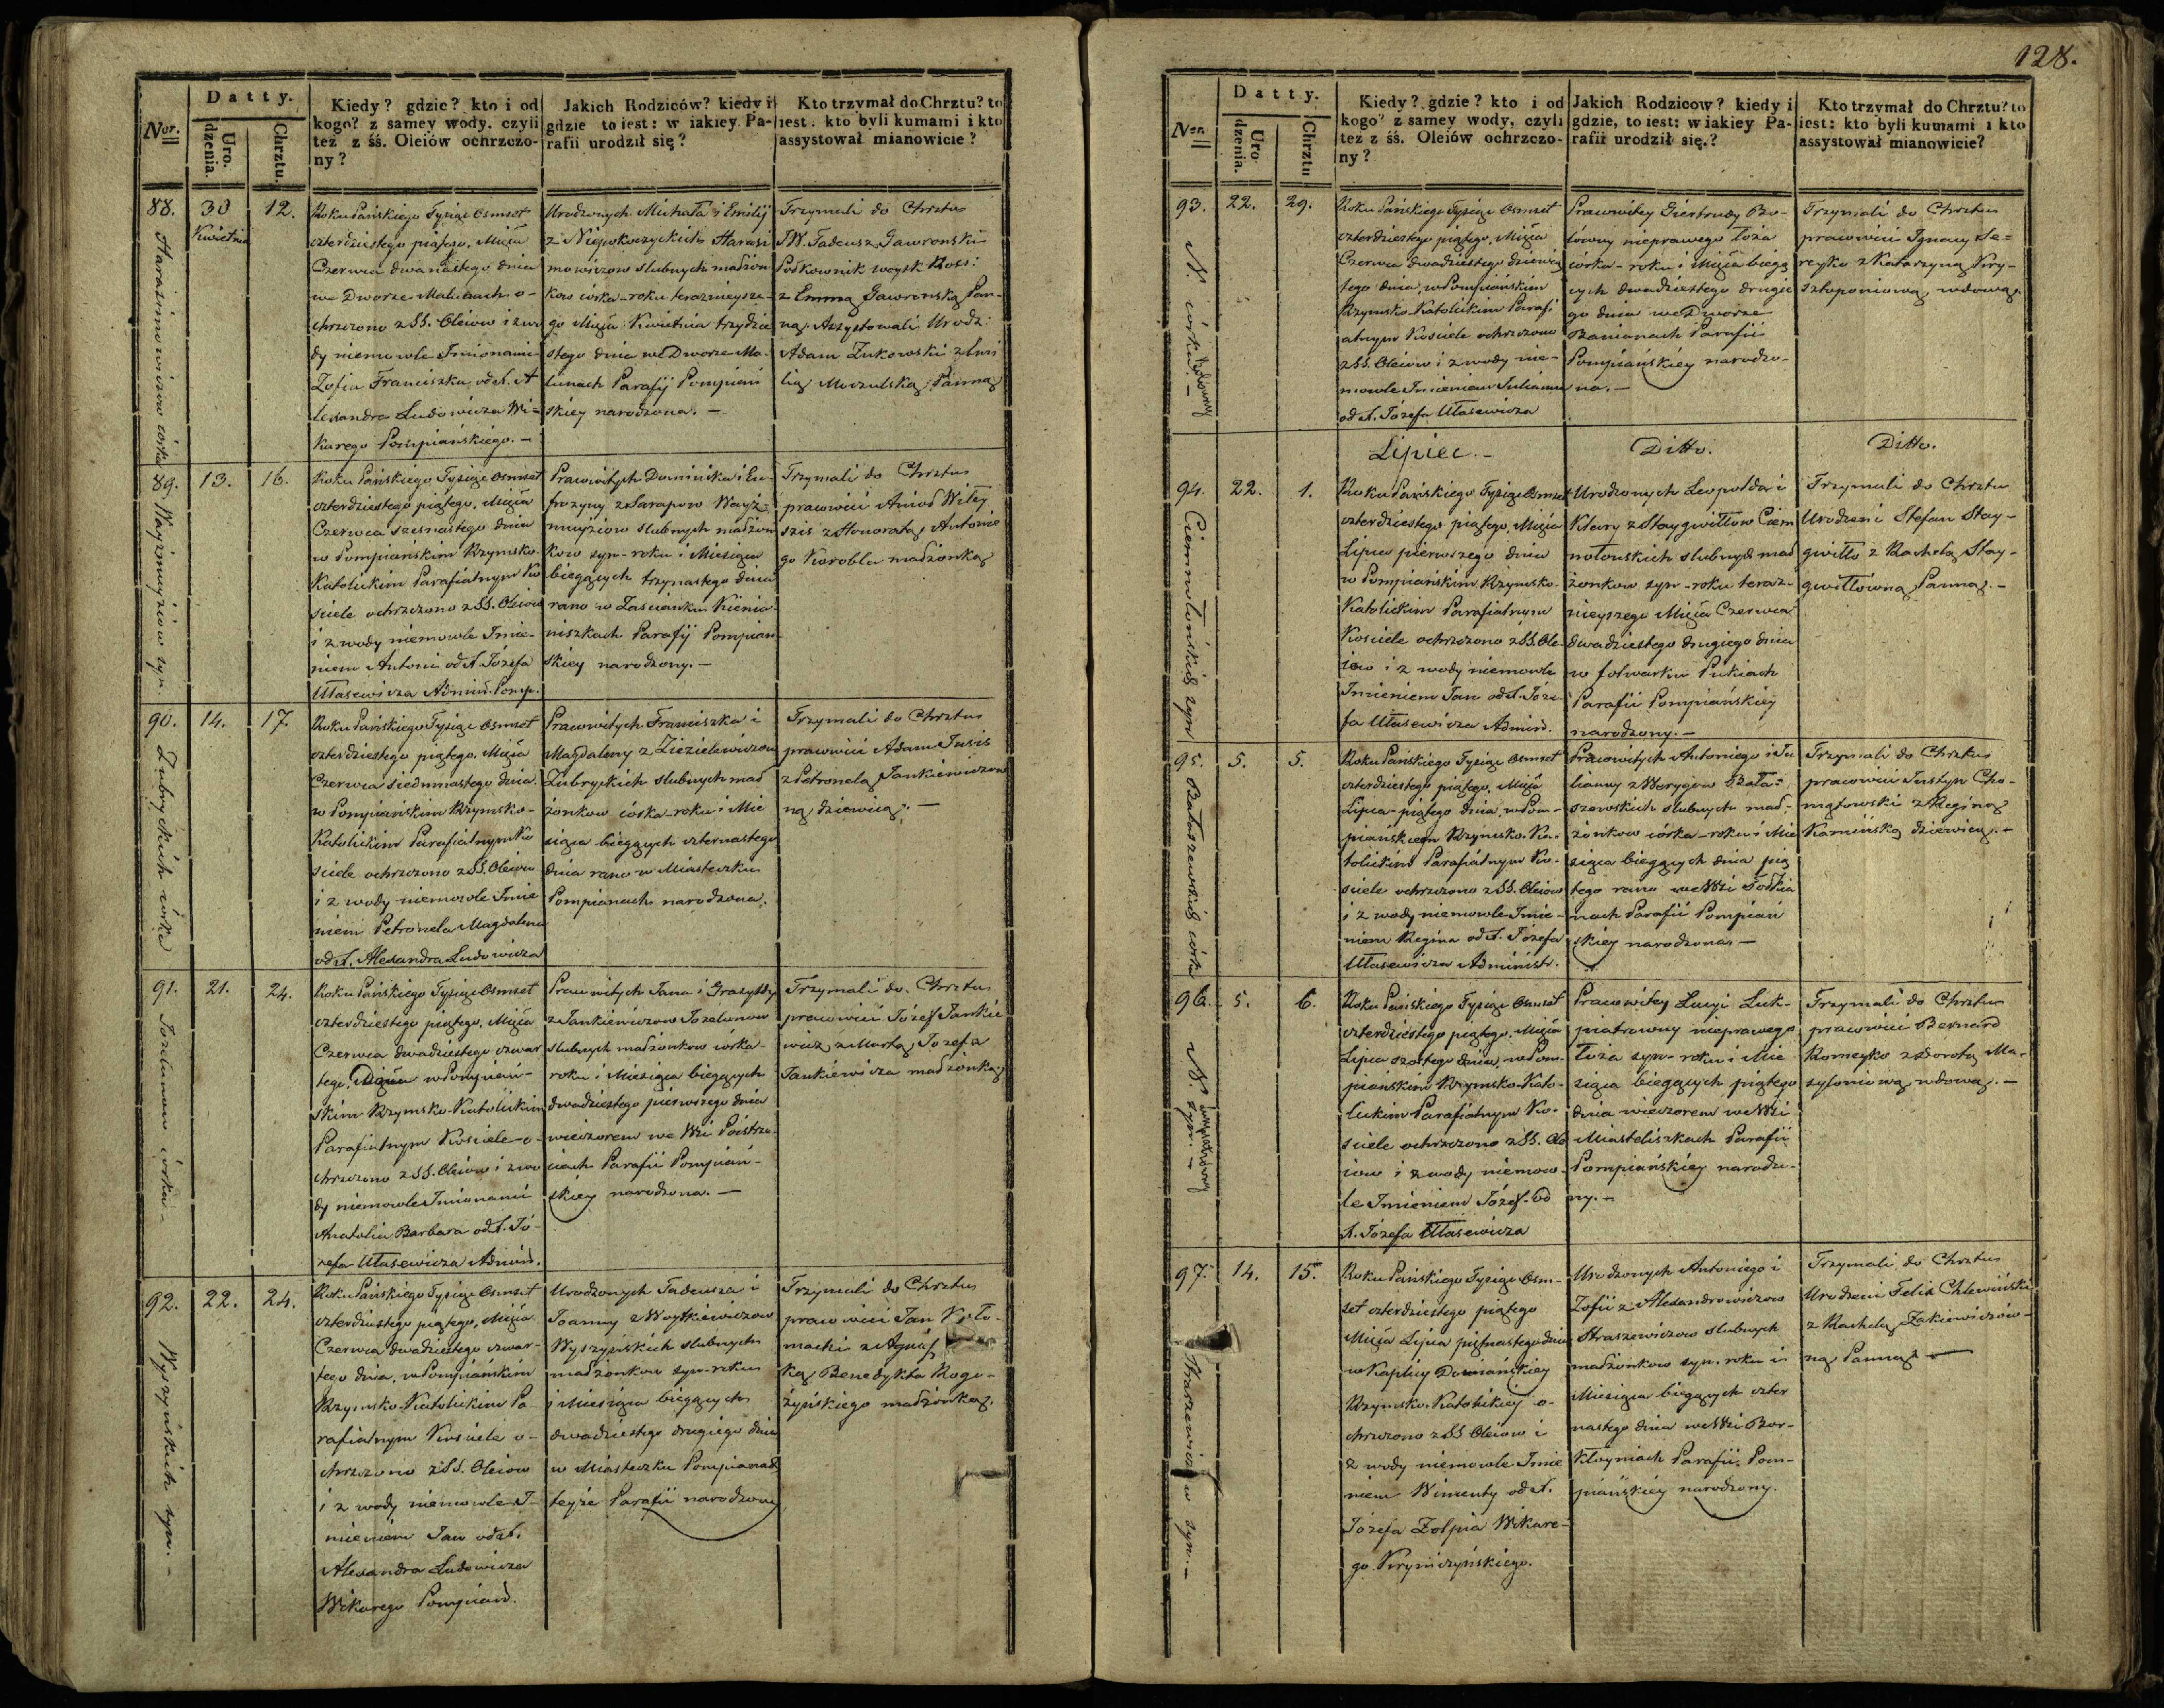 Datty.
Nor.
Uro.
dzenia.
Chrztu.
Kiedy? gdzie? kto i od
kogo? z samey wody, czyli
też z śś. Oleiów ochrzczo-
ny?
Jakich Rodziców? kiedy i
gdzie to iest: w iakiey Pa-
rafii urodził się?
Kto trzymał do Chrztu? to
iest: kto byli kumami i kto
assystował mianowicie?
88.
Harasimowiczow córka
30
Kwietnia
12.
Roku Pańskiego Tysiąc Osmset
czterdziestego piątego, Msąca
Czerwca dwanastego dnia
we Dworze Malunach o-
chrzczono z SS. Oleiow i z wo
dy niemowle Imionami
Zofia Franciszka, od X. A
lexandra Ludowicza Wi-
karego Pompiańskiego. -
Urodzonych Michała i Emilij
z Niepokoyczyckich Harasi
mowiczow slubnych małżon
kow córka - roku teraznieysze-
go Msąca Kwietnia trzydzie
stego dnia we Dworze Ma-
lunach Parafij Pompiań
skiey narodzona. -
Trzymali do Chrztu
JW. Tadeusz Jaworonski
Półkownik woysk Ross:
z Emmą Jaworonską Pan-
ną. Assystowali Urodz:
Adam Żukowski z Emi
lią Moczulską Panną
89.
Wayżmużiow syn.
13.
16.
Roku Pańskiego Tysiąc Osmset
czterdziestego piątego, Msąca
Czerwca szesnastego dnia
w Pompiańskim Rzymsko-
Katolickim Parafialnym Ko
sciele ochrzczono z SS. Oleiow
i z wody niemowle Imie-
niem Antoni od X. Józefa
Ułasewicza Admin. Pomp.
Pracowitych Dominika i Eu-
frozyny z Sarapow Wayż-
mużiow slubnych małżon
kow syn - roku i Miesiąca
bieżących trzynastego dnia
rano w Zascianku Kienio
niszkach Parafij Pompian
skiey narodzony. -
Trzymali do Chrztu
pracowici Amos Wiley
szis z Honoratą Antonie
go Korobla małżonką
90.
Zubryckich córka
14.
17.
Roku Pańskiego Tysiąc Osmset
czterdziestego piątego, Msąca
Czerwca siedmnastego dnia
w Pompiańskim Rzymsko-
Katolickim Parafialnym Ko
sciele ochrzczono z SS. Oleiow
i z wody niemowle Imie
niem Petronela Magdalena
od X. Alexandra Ludowicza
Pracowitych Franciszka i
Magdaleny z Ziezielewiczow
Zubryckich slubnych mał
żonkow córka - roku i Mie
siąca bieżących czternastego
dnia rano w Miasteczku
Pompianach narodzona.
Trzymali do Chrztu
pracowici Adam Jusis
z Petronelą Jankiewiczow
ną dziewicą. -
91.
Jozelunow córka -
21.
24.
Roku Pańskiego Tysiąc Osmset
czterdziestego piątego, Msąca
Czerwca dwadziestego czwar
tego, Dnia w Pompiań-
skim Rzymsko-Katolickim
Parafialnym Kosciele o-
chrzczono z SS. Oleiow i z wo
dy niemowle Imionami
Anatolia Barbara od X. Jó-
zefa Ułasewicza Admin.
Pracowitych Jana i Grasyldy
z Jankiewiczow Jozelunow
slubnych małżonkow córka -
roku i Miesiąca bieżących
dwadziestego pierwszego dnia
wieczorem we Wsi Poistrze-
ciach Parafii Pompiań-
skiey narodzona. -
Trzymali do Chrztu
pracowici Józef Jankie
wicz z Martą Jozefa
Jankiewicza małżonką
92.
Wyszyńskich syn. -
22.
24.
Roku Pańskiego Tysiąc Osmset
czterdziestego piątego, Msąca
Czerwca dwadziestego czwar-
tego dnia, w Pompiańskim
Rzymsko-Katolickim Pa-
rafialnym Kosciele o-
chrzczono z SS. Oleiow
i z wody niemowle I-
mieniem Jan od X.
Alexandra Ludowicza
Wikarego Pompiań.
Urodzonych Tadeusza i
Joanny z Woytkiewiczow
Wyszyńskich slubnych
małżonkow syn - roku
i Miesiąca bieżących
dwadziestego drugiego dnia
w Miasteczku Pompianach
teyże Parafii narodzony
Trzymali do Chrztu
pracowici Jan Koło-
macki z Agnisz
ką Benedykta Rogo-
żyńskiego małżonką.
128.
Datty.
Nor.
Uro-
dzenia.
Chrztu
Kiedy? gdzie? kto i od
kogo? z samey wody, czyli
też z śś. Oleiów ochrzczo-
ny?
Jakich Rodzicow? kiedy i
gdzie, to iest: w iakiey Pa-
rafii urodził się?
Kto trzymał do Chrztu? to
iest: kto byli kumami i kto
assystował mianowicie?
93.
N. córka
22.
29.
Roku Pańskiego Tysiąc Osmset
czterdziestego piątego, Msąca
Czerwca dwadziestego dziewią
tego dnia, w Pompiańskim
Rzymsko-Katolickim Parafi
alnym Kosciele ochrzczono
z SS. Oleiow i z wody nie-
mowle Imieniem Julianna
od X. Józefa Ułasewicza
Pracowitey Giertrudy Bo-
łówny nieprawego łoża
córka - roku i Msąca bieżą
cych dwadziestego drugie
go dnia we Dworze
Banionach Parafii
Pompiańskiey narodzo-
na. -
Trzymali do Chrztu
pracowici Ignacy Se-
reyko z Katarzyną Kry-
sztoponiową wdową.
Lipiec. -
Ditto.
Ditto.
94.
Ciemnołońskich syn
22.
1.
Roku Pańskiego Tysiąc Osmset
czterdziestego piątego, Msąca
Lipca pierwszego dnia
w Pompiańskim Rzymsko-
Katolickim Parafialnym
Kosciele ochrzczono z SS. Ole-
iow i z wody niemowle
Imieniem Jan od X. Józe-
fa Ułasewicza Admin.
Urodzonych Leopolda i
Klary z Staygwiłłow Ciem
nołonskich slubnych mał
żonkow syn - roku teraz-
nieyszego Msąca Czerwca
dwadziestego drugiego dnia
w folwarku Pukiach
Parafii Pompiańskiey
narodzony. -
Trzymali do Chrztu
Urodzeni Stefan Stay-
gwiłło z Rachelą Stay-
gwiłłówną Panną. -
95.
Bałaszewskich córka
5.
5.
Roku Pańskiego Tysiąc Osmset
czterdziestego piątego, Msąca
Lipca piątego dnia, w Pom-
piańskiem Rzymsko-Ka-
tolickim Parafialnym Ko-
sciele ochrzczono z SS. Oleiow
i z wody niemowle Imie-
niem Regina od X. Józefa
Ułasewicza Administr.
Pracowitych Antoniego i Ju
lianny z Werygow Bała-
szewskich slubnych mał-
żonkow córka - roku i Mie
siąca bieżących dnia pią
tego rano we Wsi
nach Parafii Pompiań
skiey narodzona -
Trzymali do Chrztu
pracowici Justyn Cho-
mątowski z Reginą
Kamińską dziewicą. -
96.
N. syn. -
5.
6.
Roku Pańskiego Tysiąc Osmset
czterdziestego piątego, Msąca
Lipca szóstego dnia, w Pom-
piańskim Rzymsko-Kato-
lickim Parafialnym Ko-
sciele ochrzczono z SS. Ole
iow i z wody niemow-
le Imieniem Józef od
X. Józefa Ułasewicza
Pracowitey Lucyi Łuk-
piatrowny nieprawego
łoża syn - roku i Mie
siąca bieżących piątego
dnia wieczorem we Wsi
Miasteliszkach Parafii
Pompiańskiey narodzo-
ny. -
Trzymali do Chrztu
pracowici Bernard
Romeyko z Dorotą Ma-
syloniową wdową. -
97.
Straszewiczow syn. -
14.
15.
Roku Pańskiego Tysiąc Osm-
set czterdziestego piątego
Msąca Lipca piętnastego dnia
w Kaplicy Dowiańskiey
Rzymsko-Katolickiey o-
chrzczono z SS Oleiow i
z wody niemowle Imie
niem Wincenty od X.
Józefa Zołpia Wikare-
go Kryniczyńskiego.
Urodzonych Antoniego i
Zofii z Alexandrowiczow
Straszewiczow slubnych
małżonkow syn. roku i
Miesiąca bieżących czter
nastego dnia we Wsi Bor-
kłoyniach Parafii Pom-
piańskiey narodzony.
Trzymali do Chrztu
Urodzeni Felix Chlewiński
z Rachelą Zakiewiczów-
ną Panną -